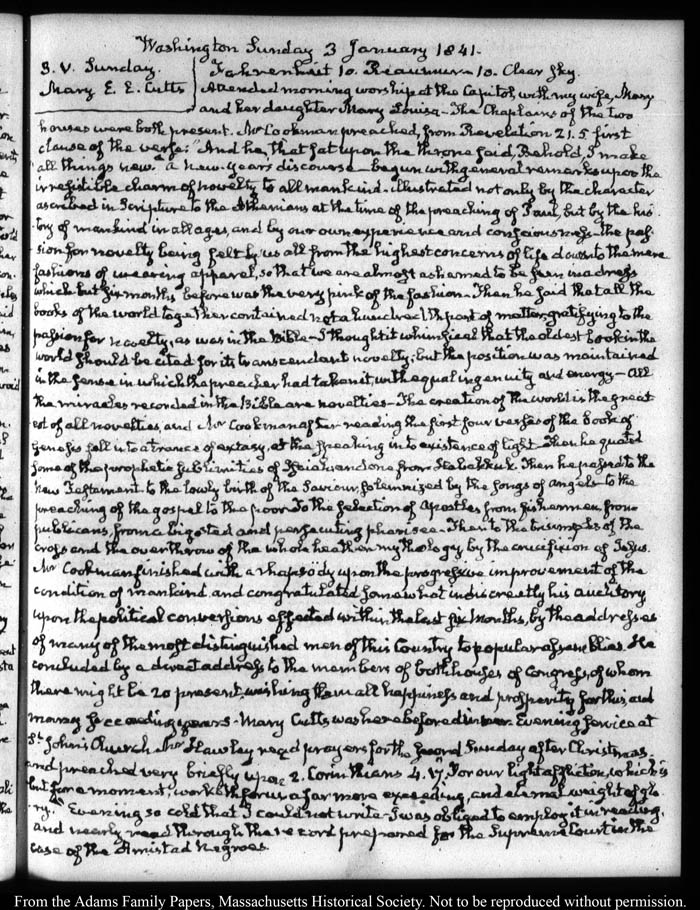 Washington Sunday 3 January 1841.
3. V. Sunday. Fahrenheit 10. Reaumur - 10. Clear sky.
Mary E. E. Cutts Attended morning worship at the Capitol, with my wife, Mary
and her daughter Mary Louisa - The Chaplains of the two
houses were both present. Mr Cookman preached, from Revelation 21.5 first
clause of the verse: "And he, that sat upon the throne said, Behold, I make
all things new." a new-year's discourse - begun with general remarks upon the
irresistible charm of novelty to all mankind - illustrated not only by the character
ascribed in Scripture to the Athenians at the time of the preaching of Paul, but by the his-
tory of mankind in all ages, and by our own experience and consciousness - the pas-
sion for novelty being felt by us all from the highest concerns of life down to the mere
fashions of wearing apparel, so that we are almost ashamed to be seen in a dress
which but six months before was the very pink of the fashion - Then he said that all the
books of the world together contained not a hundredth part of matter, gratifying to the
passion for novelty, as was in the Bible - I thought it whimsical that the oldest book in the
world should be cited for its transcendant novelty; but the position was maintained
in the sense in which the preacher had taken it, with equal ingenuity and energy - All
the miracles recorded in the Bible are novelties - The creation of the world is the great-
est of all novelties, and Mr Cookman after reading the first four verses of the book of
Genesis fell into a trance of extasy, at the speaking into existence of light - Then he quoted
some of the prophetic sublimities of Isaiah and one from Habakkuk. Then he passed to the
New Testament - to the lowly birth of the Saviour, solemnized by the songs of angels - to the
preaching of the gospel to the poor - To the selection of Apostles from fishermen, from
publicans, from a bigoted and persecuting pharisee - Then to the triumphs of the
cross and the overthrow of the whole heathen mythology by the crucifixion of Jesus.
Mr Cookman finished with a rhapsody upon the progressive improvement of the
condition of mankind, and congratulated somewhat indiscreetly his auditory
upon the political conversions effected within the last six months, by the addresses
of many of the most distinguished men of this Country to popular assemblies. He
concluded by a direct address to the members of both houses of Congress, of whom
there might be 20 present, wishing them all happiness and prosperity for this, and
many succeeding years - Mary Cutts was here before dinner. Evening service at
St. John's Church - Mr Hawley read prayers for the second Sunday after Christmas -
and preached very briefly upon 2. Corinthians 4. 17. "For our light affliction, which is
but for a moment, worketh for us a far more exceeding, and eternal weight of glo-
ry." Evening so cold that I could not write - I was obliged to employ it in reading,
and nearly read through the record prepared for the Supreme Court in the
case of the Amistad Negroes.
From the Adams Family Papers, Massachusetts Historical Society. Not to be reproduced without permission.